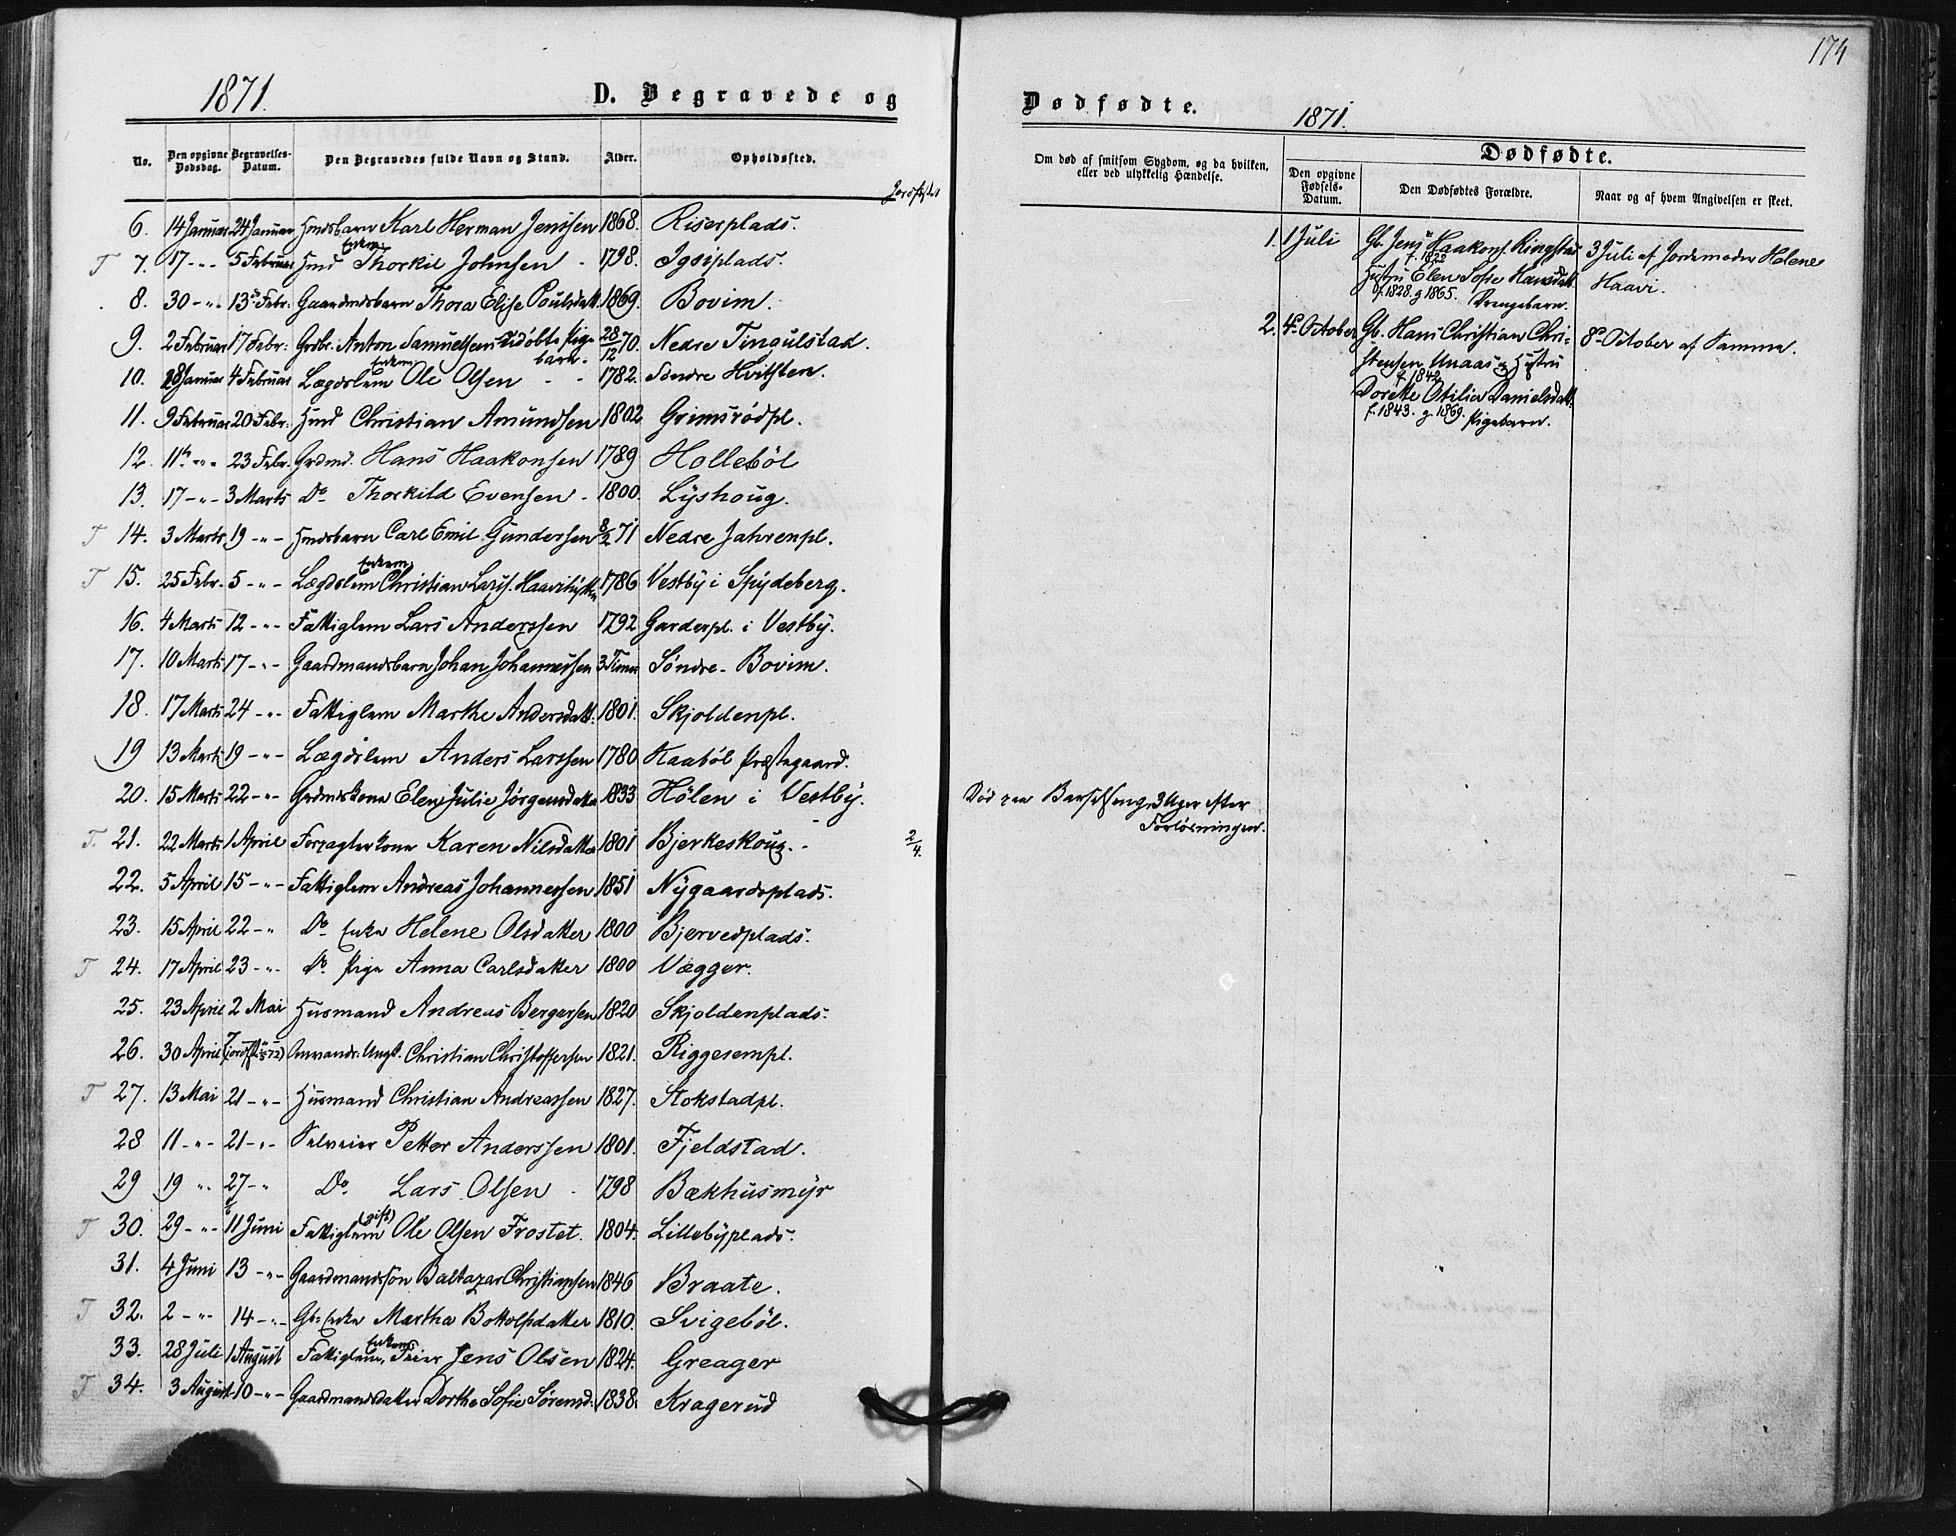 1871.
D. Begravede og
No.
Den opgivne Dødsdag.
Begravelses-Datum.
Den Begravedes fulde Navn og Stand.
Alder.
Opholdssted.
6. 14 Januar 24 Januar Hmdsbarn Karl Herman Jenssen 1868. Riserplads.
T 7. 17 -"- 5 Februar Hmd Enkem. Thorkil Johnsen - 1798. Igsiplads.
8. 30 -"- 13de Febr. Gaardmdsbarn Thora Elise Poulsdatt. 1869. Bovim.
9. 2 Februar 17 Febr. Grdbr. Anton Samuelsens udøbte Pige-barn. 28/12 70. Nedre Tingulstad.
10. 28 Januar 4 Februar Lægdslem Enkem Ole Olsen - - 1782. Søndre Hvitsten.
11. 9 Februar 20 Febr. Hmd Christian Amundsen 1802 Grimsrödpl.
12. 11te -"- 23 Febr. Grdmd. Hans Haakonsen 1789 Holleböl
13. 17 -"- 3 Marts Do Thorkild Evensen - 1800. Lyshoug.
T 14. 3 Marts 19 -"- Hmdsbarn Carl Emil Gundersen 8/2 71 Nedre Jahrenpl.
T 15. 25 Febr. 5 -"- Lægdslem Enkem. Christian Lars. Haavihytten 1786 Vestby i Spydeberg.
16. 4 Marts 12 -"- Fattiglem Lars Anderssen 1792 Garderpl. i Vestby.
17. 10 Marts 17 -"- Gaardmandsbarn Johan Johannessen 3 Timer Søndre Bovim.
18. 17 Marts 24 -"- Fattiglem Marthe Andersdatt. 1801. Skjoldenpl.
19 13 Marts 19 -"- Lægdslem Anders Larssen 1780 Kaaböl Præstegaard.
20. 15 Marts 22 -"- Grdmdskone Elen Julie Jørgensdatter 1833 Hölen i Vestby.
T. 21. 22 Marts 1 April Forpagterkone Karen Nilsdatter 1801 Bjerkeskoug. - 2/4.
22. 5 April 15 -"- Fattiglem Andreas Johannessen 1851 Nygaardsplads.
23. 15 April 22 -" Do Enke Helene Olsdatter 1800 Bjervedplads.
T 24. 17 April 23 -"- Do Pige Anna Carlsdatter 1800 Vægger.
25. 23 April 2 Mai Husmand Andreas Bergersen 1820 Skjoldenplads.
26. 30 April 7 Christian Christoffersen 1821. Riggesempl.
T 27. 13 Mai 21 -"- Husmand Christian Andreassen 1827. Stokstadpl.
28 11 -"- 21 -"- Selveier Petter Anderssen 1801. Fjeldstad.
29 19 " 27 -" Do. Lars Olsen - 1798 Bækhusmyr
T 30. 29 -"- 11 Juni Fattiglem (gift) Ole Olsen Frostet. 1804. Lillebyplads.
31. 4 Juni 13 -"- Gaardmandssøn Baltazar Christiansen 1846 Braate.
T 32. 2 -"- 14 -"- Gb: Enke Martha Bottolfsdatter 1810. Svigeböl.
33. 28 Juli 1 August Fattiglem, Enkem. Feier Jens Olsen 1824. Greager
T 34. 3 August 10 -"- Gaardmandsdatter Dorthe Sofie Sørensd. 1838. Kragerud
174
Dødfødte.
1871.
Om død af smitsom Sygdom, og da hvilken,
eller ved ulykkelig Hændelse.
Dødfødte.
Den opgivne Fødsels-Datum.
Den Dødfødtes Forældre.
Naar og af hvem Angivelsen er skeet.
1. 1 Juli Gb. Jens Haakons. Ringstad 3 Juli af Jordemoder Helene
f. 1822
Hustru Elen Sofie Hansdatt. Haavi.
f. 1828. g 1865. Drengebarn.
2. 4de October Gb. Hans Christian Chri- 8de October af Samme.
stensen Unaas og Hustru
f. 1842
Dorette Otilia Danielsdatt.
f. 1843. g. 1869. Pigebarn.
Død paa Barselseng, 3 Uger efter
Forløsningen.